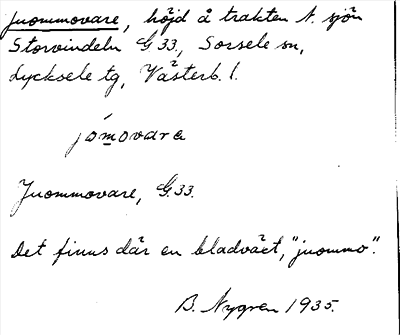 Juommovare, höjd å trakten N. sjön
Storvindeln G 33, Sorsele sn,
Lycksele tg, Västerb. l.
jómovara
Juommovare, G.33.
Det finns där en bladväxt, "juommo".
B. Nygren 1935.